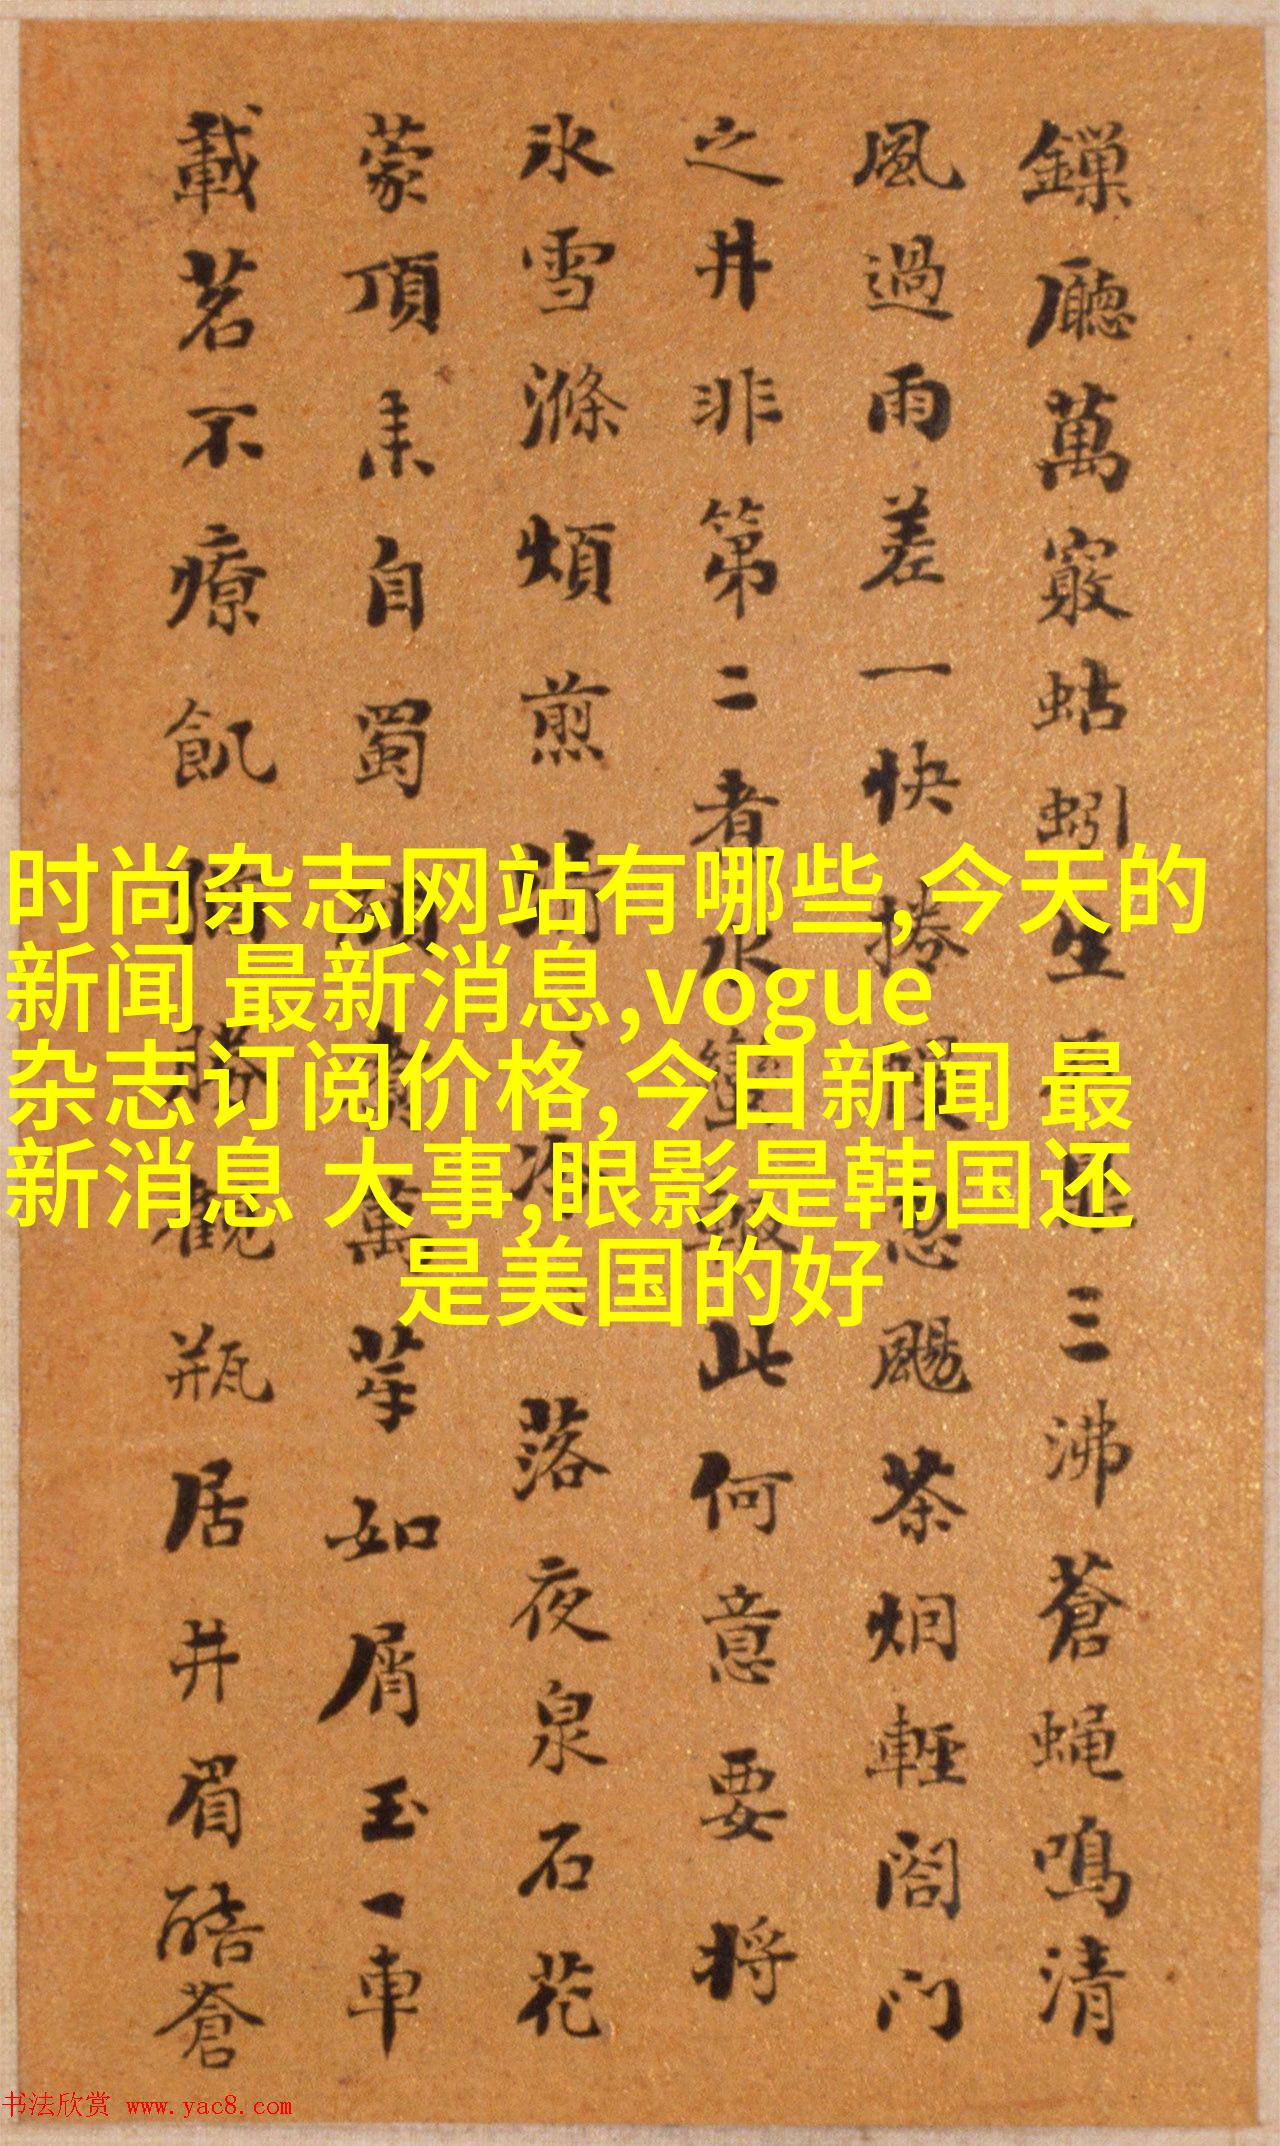 廳萬竅蛄蚓生三沸蒼蝇鳴清
風過雨差一快捲颺茶烟輕閤門
之井非第二者水此何意要将
氷雪滌煩煎落夜泉石花
蒙頂来自蜀萬芽如屑玉一車
載茗不療飢勝觀瓶居井眉酷蒼
时尚杂志网站有哪些,今天的
新闻 最新消息,vogue
杂志订阅价格,今日新闻 最
新消息 大事,眼影是韩国还
是美国的好
书法欣赏 www.yac8.com